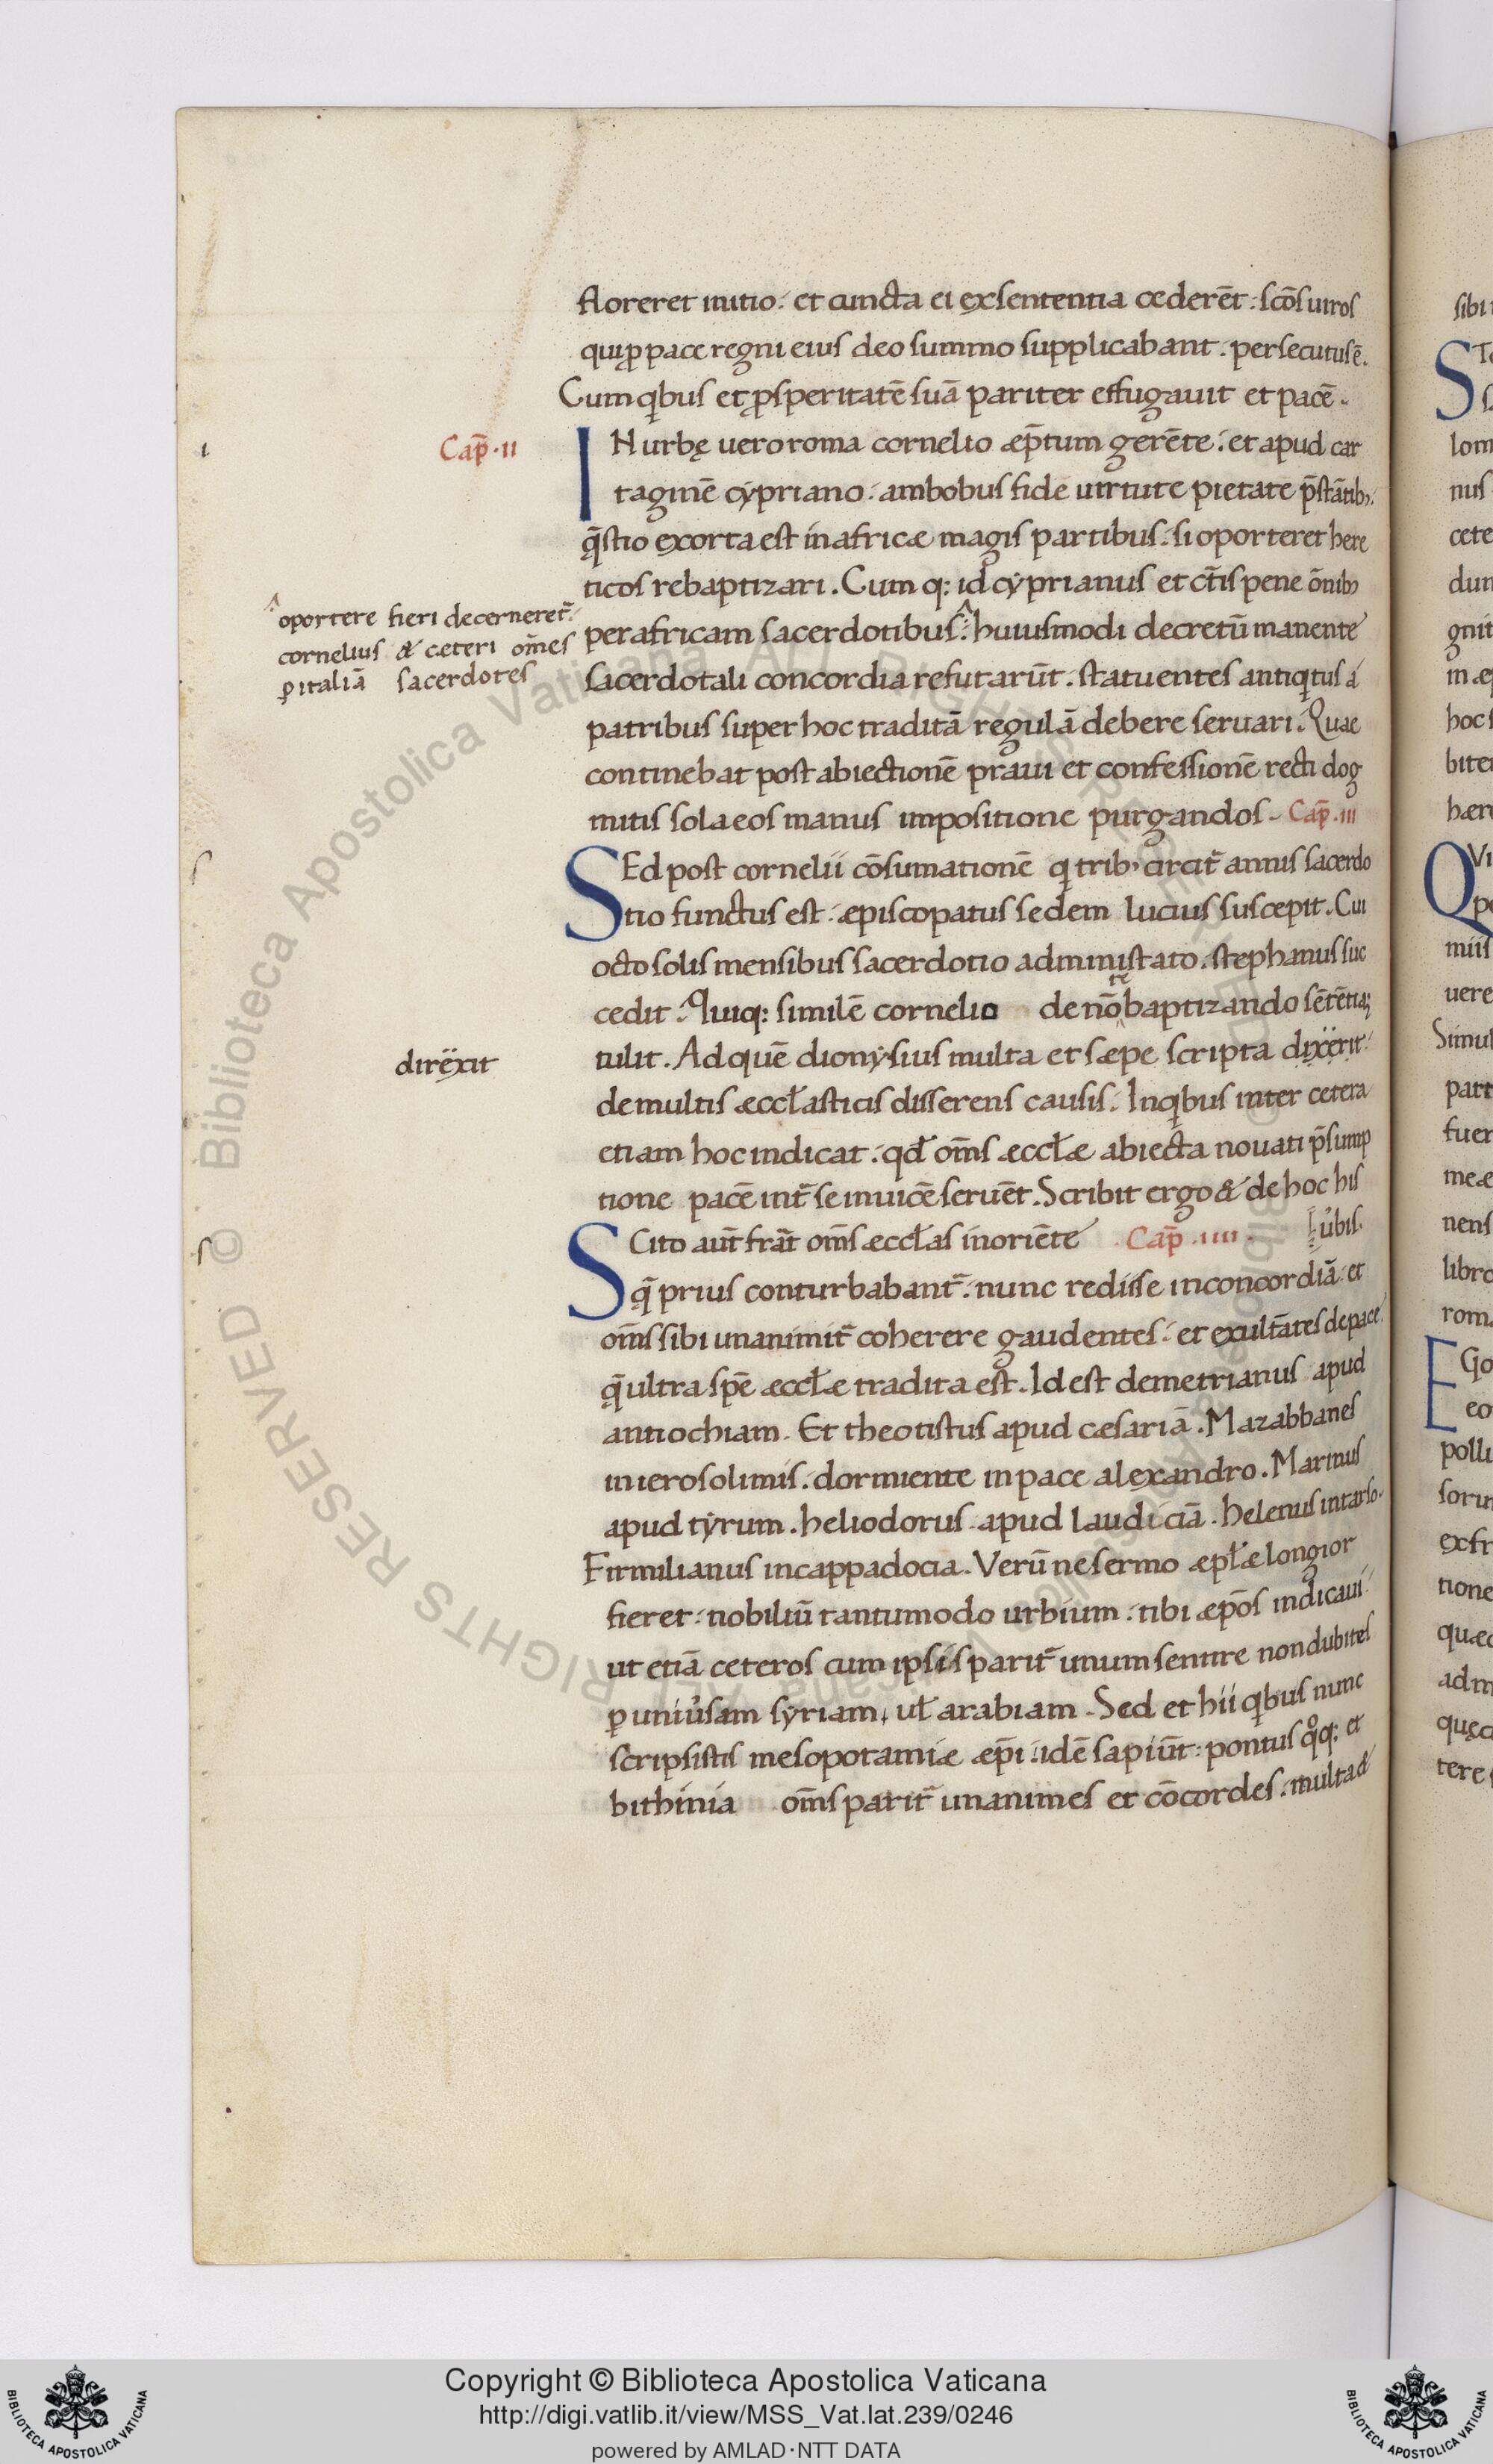 floreret initio. et cuncta ei exsententia cederēt. scōs uiros
qui ꝓ pace regni eius deo summo supplicabant. persecutus ē.
Cum qͥbus et ꝓsperitatē suā pariter effugauit et pacē.
Cap̄.II
IN urbę uero roma cornelio æp̄tum gerēte. et apud car
taginē cẏpriano. ambobus fide uirtute pietate p̄stātib;.
q̄stio exorta est in africæ magis partibus. si oporteret here
ticos rebaptizari. Cum q: id cẏprianus et ct̄is pene ōnib;
per africam sacerdotibus. huiusmodi decretū manente
oportere fieri decerneret̄.
cornelius & ceteri om̄es
ꝑ italiā sacerdotes
sacerdotali concordia refutarūt. statuentes antiqͥtus á
patribus super hoc traditā regulā debere seruari. Quae
continebat post abiectionē praui et confessionē recti dog
mitis sola eos manus impositione purgandos. Cap̄.III
SEd post cornelii cōsumationē qͥ trib; circit̄ annis sacerdo
tio functus est. æpiscopatus sedem lucius suscepit. Cui
octo solis mensibus sacerdotio administrato. stephanus suc
cedit. Quiq: similē cornelio de nō baptizando sētētiā
tulit. Ad quē dionẏsius multa et sæpe scripta dixerit.
direxit
de multis æccłasticis disserens causis. In qͥbus inter cetera
etiam hoc indicat. qđ om̄s æccłæ abiecta nouati p̄sump
tione pacē int̄ se inuicē seruēt. Scribit ergo & de hoc his
u͛bis.
SCito aut̄ frat̄ om̄s æccłas in oriēte Cap̄.IIII.
q̄ prius conturbabant̄. nunc redisse in concordiā. et
om̄s sibi unanimit̄ coherere gaudentes. et exultātes de pace.
q̄ ultra spē æccłæ tradita est. Id est demetrianus apud
antiochiam. Et theotistus apud cæsariā. Mazabbanes
in ierosolimis. dormiente in pace alexandro. Marinus
apud tẏrum. heliodorus apud laudiciā. helenus in tarso.
Firmilianus in cappadocia. Verū ne sermo æpłæ longior
fieret. nobiliū tantumodo urbium. tibi æpōs indicaui.
ut etiā ceteros cum ipsis parit̄ unum sentire non dubites
ꝑ uniu͛sam sẏriam, uł arabiam. Sed et hii qͥbus nunc
scripsistis mesopotamiæ æp̄i. idē sapiūt. pontus qͦq: et
bithinia om̄s parit̄ unanimes et cōcordes. multa &
Copyright © Biblioteca Apostolica Vaticana
http://digi.vatlib.it/view/MSS_Vat.lat.239/0246
powered by AMLAD·NTT DATA